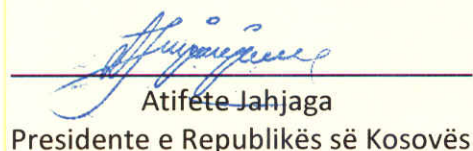 Atifete Jahjaga
Presidente e Republikës së Kosovës